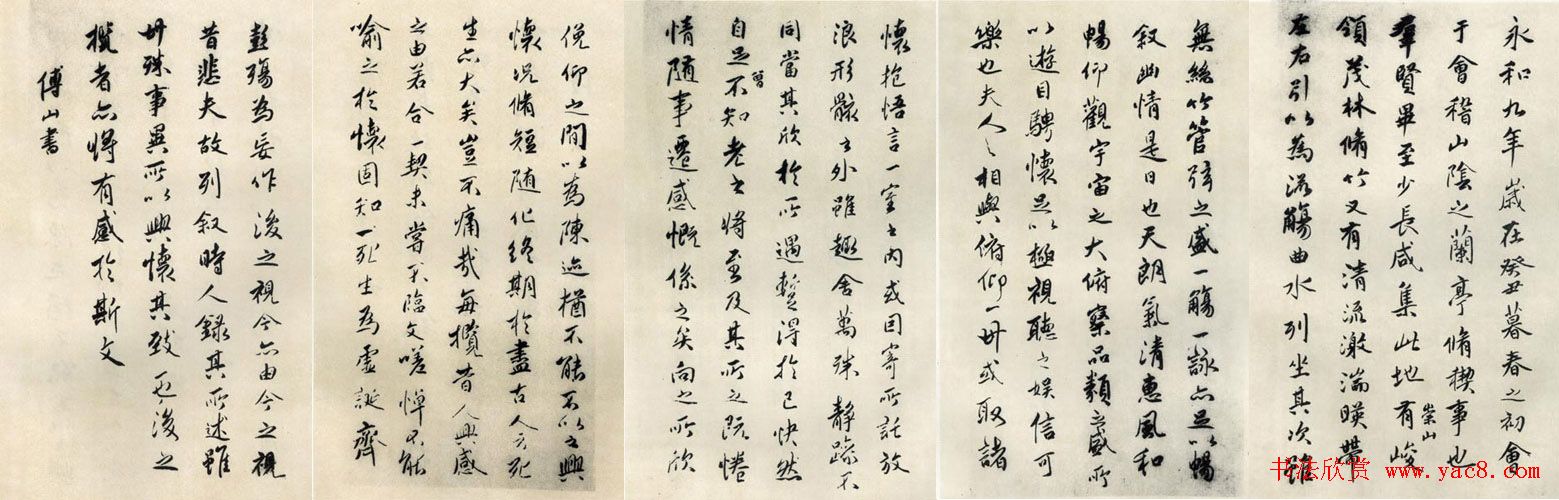 永和九年歲在癸丑暮春之初會
于會稽山陰之蘭亭脩禊事也
羣賢畢至少長咸集此地有崇山峻
領茂林脩竹又有清流激湍暎帶
左右引以為流觴曲水列坐其次雖
無絲竹管弦之盛一觴一詠亦足以暢
叙幽情是日也天朗氣清惠風和
暢仰觀宇宙之大俯察品類之盛所
以遊目騁懷足以極視聽之娛信可
樂也夫人之相與俯仰一世或取諸
懷抱悟言一室之內或因寄所託放
浪形骸之外雖趣舍萬殊靜躁不
同當其欣於所遇蹔得於己快然
自足不知老之將至及其所之既惓
情隨事遷感慨係之矣向之所欣
俛仰之間以為陳迹猶不能不以之興
懷況脩短隨化終期於盡古人云死
生亦大矣豈不痛哉每攬昔人興感
之由若合一契未嘗不臨文嗟悼不能
喻之於懷固知一死生為虛誕齊
彭殤為妄作後之視今亦由今之視
昔悲夫故列叙時人錄其所述雖
世殊事異所以興懷其致一也後之
攬者亦將有感於斯文
傅山書
书法欣赏 www.yac8.com